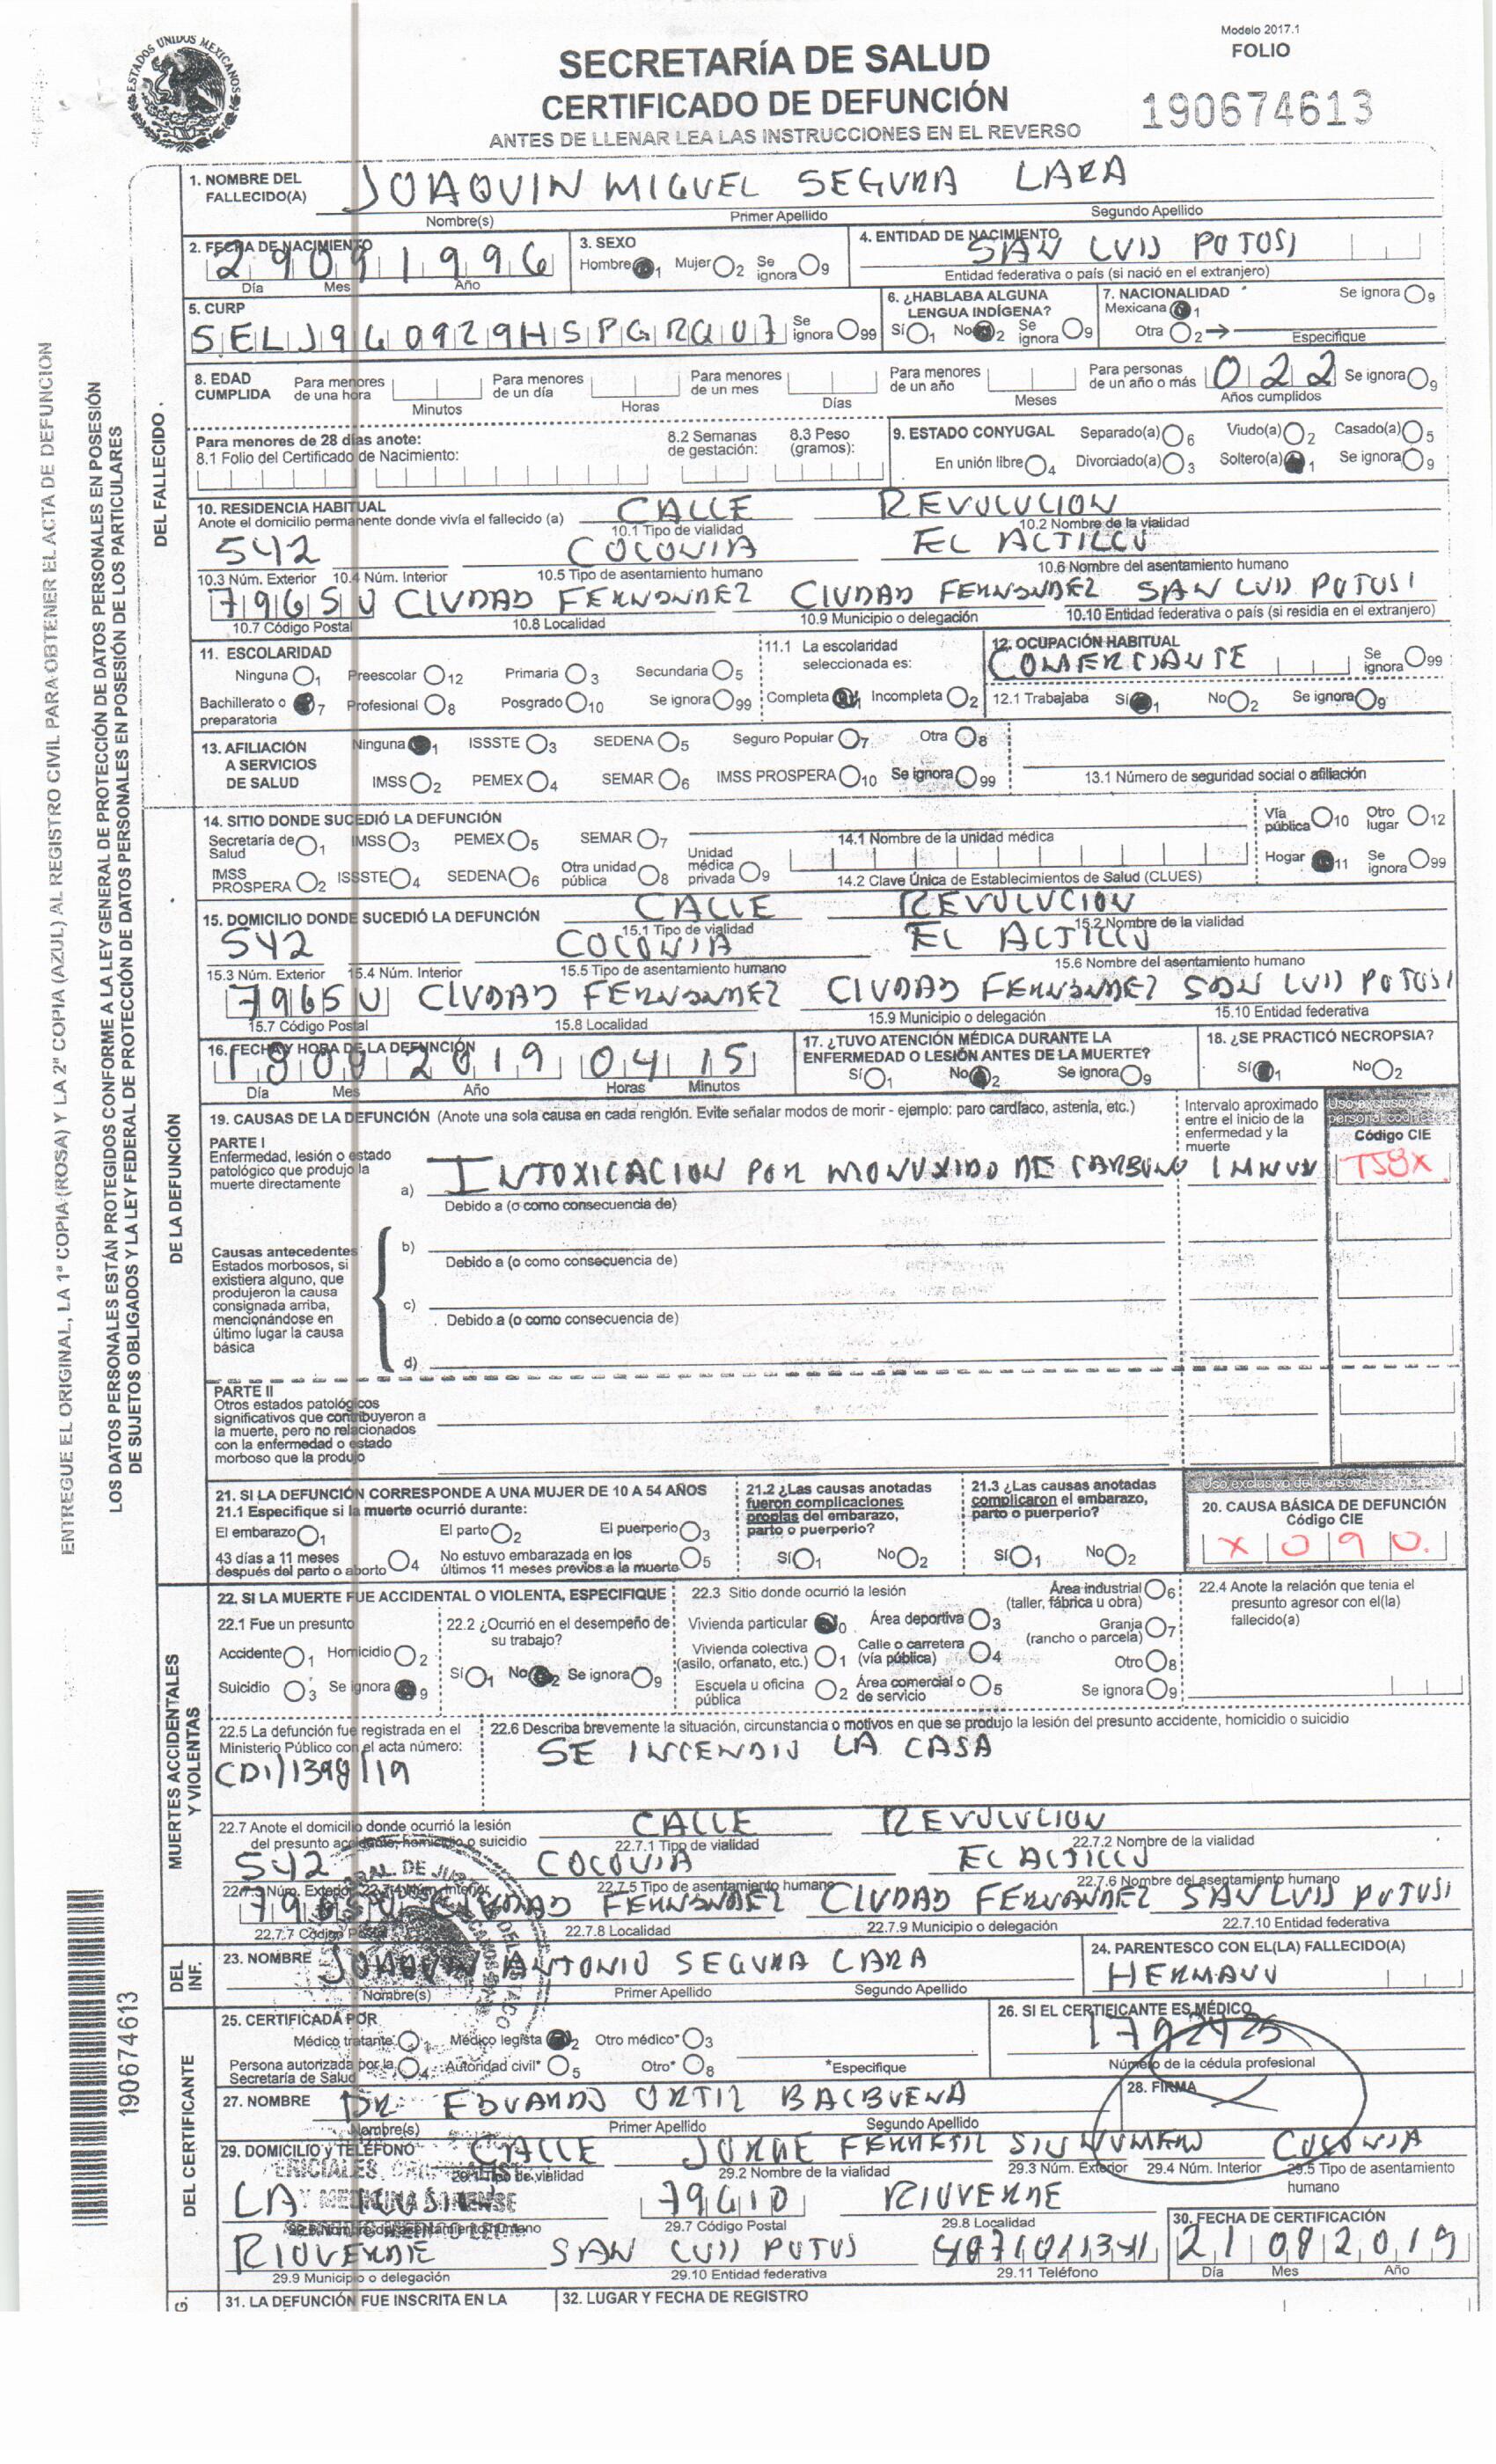 Modelo 2017.1
FOLIO
ESTADOS UNIDOS MEXICANOS
SECRETARÍA DE SALUD
CERTIFICADO DE DEFUNCIÓN
190674613
ANTES DE LLENAR LEA LAS INSTRUCCIONES EN EL REVERSO
ENTREGUE EL ORIGINAL, LA 1ª COPIA (ROSA) Y LA 2ª COPIA (AZUL) AL REGISTRO CIVIL PARA OBTENER EL ACTA DE DEFUNCION
LOS DATOS PERSONALES ESTÁN PROTEGIDOS CONFORME A LA LEY GENERAL DE PROTECCIÓN DE DATOS PERSONALES EN POSESIÓN
DE SUJETOS OBLIGADOS Y LA LEY FEDERAL DE PROTECCIÓN DE DATOS PERSONALES EN POSESIÓN DE LOS PARTICULARES
DEL FALLECIDO
1. NOMBRE DEL FALLECIDO(A) JOAQUIN MIGUEL SEGURA LARA
Nombre(s) Primer Apellido Segundo Apellido
2. FECHA DE NACIMIENTO 29091996
Día Mes Año
3. SEXO
Hombre 1 Mujer 2 Se ignora 9
4. ENTIDAD DE NACIMIENTO SAN LUIS POTOSI
Entidad federativa o país (si nació en el extranjero)
5. CURP
SELJ960929HSPGRQ07 Se ignora 99
6. ¿HABLABA ALGUNA LENGUA INDÍGENA?
Sí 1 No 2 Se ignora 9
7. NACIONALIDAD Se ignora 9
Mexicana 1
Otra 2 Especifique
8. EDAD CUMPLIDA Para menores de una hora Minutos
Para menores de un día Horas
Para menores de un mes Días
Para menores de un año Meses
Para personas de un año o más 022 Años cumplidos Se ignora 9
Para menores de 28 días anote:
8.1 Folio del Certificado de Nacimiento:
8.2 Semanas de gestación:
8.3 Peso (gramos):
9. ESTADO CONYUGAL Separado(a) 6 Viudo(a) 2 Casado(a) 5
En unión libre 4 Divorciado(a) 3 Soltero(a) 1 Se ignora 9
10. RESIDENCIA HABITUAL
Anote el domicilio permanente donde vivía el fallecido (a) CALLE REVOLUCION
10.1 Tipo de vialidad 10.2 Nombre de la vialidad
542 COLONIA EL ALTILLO
10.3 Núm. Exterior 10.4 Núm. Interior 10.5 Tipo de asentamiento humano 10.6 Nombre del asentamiento humano
79650 CIUDAD FERNANDEZ CIUDAD FERNANDEZ SAN LUIS POTOSI
10.7 Código Postal 10.8 Localidad 10.9 Municipio o delegación 10.10 Entidad federativa o país (si residia en el extranjero)
11. ESCOLARIDAD
Ninguna 1 Preescolar 12 Primaria 3 Secundaria 5
Bachillerato o preparatoria 7 Profesional 8 Posgrado 10 Se ignora 99
11.1 La escolaridad seleccionada es:
Completa 1 Incompleta 2
12. OCUPACIÓN HABITUAL
COMERCIANTE Se ignora 99
12.1 Trabajaba Sí 1 No 2 Se ignora 9
13. AFILIACIÓN A SERVICIOS DE SALUD
Ninguna 1 ISSSTE 3 SEDENA 5 Seguro Popular 7 Otra 8
IMSS 2 PEMEX 4 SEMAR 6 IMSS PROSPERA 10 Se ignora 99
13.1 Número de seguridad social o afiliación
DE LA DEFUNCIÓN
14. SITIO DONDE SUCEDIÓ LA DEFUNCIÓN
Secretaría de Salud 1 IMSS 3 PEMEX 5 SEMAR 7
14.1 Nombre de la unidad médica
Vía pública 10 Otro lugar 12
IMSS PROSPERA 2 ISSSTE 4 SEDENA 6 Otra unidad pública 8 Unidad médica privada 9
14.2 Clave Única de Establecimientos de Salud (CLUES)
Hogar 11 Se ignora 99
15. DOMICILIO DONDE SUCEDIÓ LA DEFUNCIÓN CALLE REVOLUCION
15.1 Tipo de vialidad 15.2 Nombre de la vialidad
542 COLONIA EL ALTILLO
15.3 Núm. Exterior 15.4 Núm. Interior 15.5 Tipo de asentamiento humano 15.6 Nombre del asentamiento humano
79650 CIUDAD FERNANDEZ CIUDAD FERNANDEZ SAN LUIS POTOSI
15.7 Código Postal 15.8 Localidad 15.9 Municipio o delegación 15.10 Entidad federativa
16. FECHA Y HORA DE LA DEFUNCIÓN
2019 04 15
Día Mes Año Horas Minutos
17. ¿TUVO ATENCIÓN MÉDICA DURANTE LA ENFERMEDAD O LESIÓN ANTES DE LA MUERTE?
Sí 1 No 2 Se ignora 9
18. ¿SE PRACTICÓ NECROPSIA?
Sí 1 No 2
19. CAUSAS DE LA DEFUNCIÓN (Anote una sola causa en cada renglón. Evite señalar modos de morir - ejemplo: paro cardíaco, astenia, etc.)
Intervalo aproximado entre el inicio de la enfermedad y la muerte
Uso exclusivo del personal codificador
Código CIE
PARTE I
Enfermedad, lesión o estado patológico que produjo la muerte directamente
a) INTOXICACION POR MONOXIDO DE CARBONO T58X
Debido a (o como consecuencia de)
Causas antecedentes
Estados morbosos, si existiera alguno, que produjeron la causa consignada arriba, mencionándose en último lugar la causa básica
b)
Debido a (o como consecuencia de)
c)
Debido a (o como consecuencia de)
d)
PARTE II
Otros estados patológicos significativos que contribuyeron a la muerte, pero no relacionados con la enfermedad o estado morboso que la produjo
21. SI LA DEFUNCIÓN CORRESPONDE A UNA MUJER DE 10 A 54 AÑOS
21.1 Especifique si la muerte ocurrió durante:
El embarazo 1 El parto 2 El puerperio 3
43 días a 11 meses después del parto o aborto 4 No estuvo embarazada en los últimos 11 meses previos a la muerte 5
21.2 ¿Las causas anotadas fueron complicaciones propias del embarazo, parto o puerperio?
Sí 1 No 2
21.3 ¿Las causas anotadas complicaron el embarazo, parto o puerperio?
Sí 1 No 2
Uso exclusivo del personal codificador
20. CAUSA BÁSICA DE DEFUNCIÓN
Código CIE
X090.
MUERTES ACCIDENTALES Y VIOLENTAS
22. SI LA MUERTE FUE ACCIDENTAL O VIOLENTA, ESPECIFIQUE
22.1 Fue un presunto
Accidente 1 Homicidio 2
Suicidio 3 Se ignora 9
22.2 ¿Ocurrió en el desempeño de su trabajo?
Sí 1 No 2 Se ignora 9
22.3 Sitio donde ocurrió la lesión
Vivienda particular 0 Área deportiva 3 Área industrial (taller, fábrica u obra) 6
Vivienda colectiva (asilo, orfanato, etc.) 1 Calle o carretera (vía pública) 4 Granja (rancho o parcela) 7
Escuela u oficina pública 2 Área comercial o de servicio 5 Otro 8
Se ignora 9
22.4 Anote la relación que tenia el presunto agresor con el(la) fallecido(a)
22.5 La defunción fue registrada en el Ministerio Público con el acta número:
CDI/1398/19
22.6 Describa brevemente la situación, circunstancia o motivos en que se produjo la lesión del presunto accidente, homicidio o suicidio
SE INCENDIO LA CASA
22.7 Anote el domicilio donde ocurrió la lesión del presunto accidente, homicidio o suicidio CALLE REVOLUCION
22.7.1 Tipo de vialidad 22.7.2 Nombre de la vialidad
542 COLONIA EL ALTILLO
22.7.3 Núm. Exterior 22.7.4 Núm. Interior 22.7.5 Tipo de asentamiento humano 22.7.6 Nombre del asentamiento humano
CIUDAD FERNANDEZ CIUDAD FERNANDEZ SAN LUIS POTOSI
22.7.7 Código Postal 22.7.8 Localidad 22.7.9 Municipio o delegación 22.7.10 Entidad federativa
DEL INF.
23. NOMBRE JOAQUIN ANTONIO SEGURA LARA
Nombre(s) Primer Apellido Segundo Apellido
24. PARENTESCO CON EL(LA) FALLECIDO(A)
HERMANO
DEL CERTIFICANTE
25. CERTIFICADA POR
Médico tratante 1 Médico legista 2 Otro médico* 3
Persona autorizada por la Secretaría de Salud 4 Autoridad civil* 5 Otro* 8 *Especifique
26. SI EL CERTIFICANTE ES MÉDICO
Número de la cédula profesional
27. NOMBRE DR EDUARDO ORTIZ BALBUENA
Nombre(s) Primer Apellido Segundo Apellido
28. FIRMA
29. DOMICILIO y TELÉFONO CALLE JORGE FERRETIZ SIN NUMERO COLONIA
29.1 Tipo de vialidad 29.2 Nombre de la vialidad 29.3 Núm. Exterior 29.4 Núm. Interior 29.5 Tipo de asentamiento humano
LA 79610 RIOVERDE
29.6 Nombre del asentamiento humano 29.7 Código Postal 29.8 Localidad
RIOVERDE SAN LUIS POTOS 4871011341
29.9 Municipio o delegación 29.10 Entidad federativa 29.11 Teléfono
30. FECHA DE CERTIFICACIÓN
21082019
Día Mes Año
G.
31. LA DEFUNCIÓN FUE INSCRITA EN LA
32. LUGAR Y FECHA DE REGISTRO
190674613